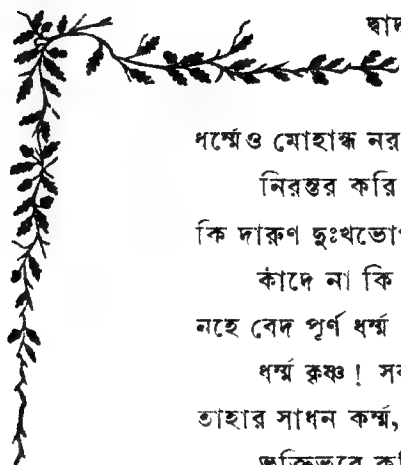 দ্বাদ
ধর্ম্মেও মোহান্ধ নর
নিরন্তর করি
কি দারুণ দুঃখভোগ
কাঁদে না কি
নহে বেদ পূর্ণ ধর্ম্ম
ধর্ম্ম কৃষ্ণ ! সব
তাহার সাধন কর্ম্ম,
ভক্তিভরে করি